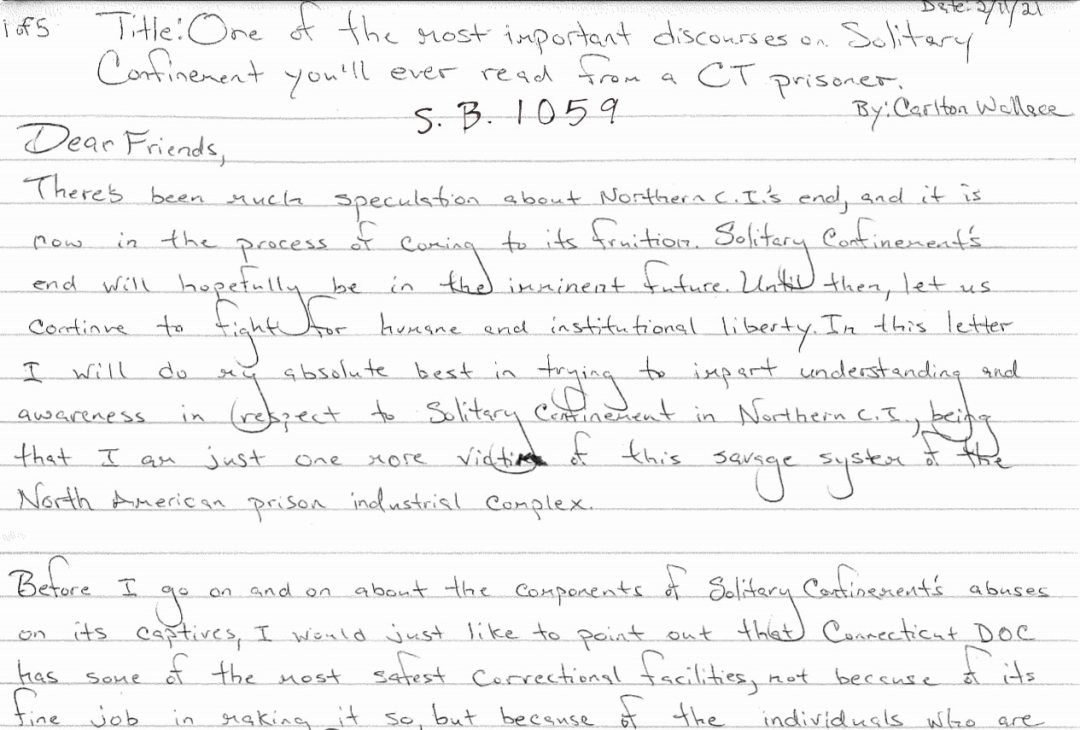 Date: 2/11/21
1 of 5 Title: One of the most important discourses on Solitary
Confinement you'll ever read from a CT prisoner.
S. B. 1059 By: Carlton Wallace
Dear Friends,
There's been much speculation about Northern C.I.'s end, and it is
now in the process of coming to its fruition. Solitary Confinement's
end will hopefully be in the imminent future. Until then, let us
continue to fight for humane and institutional liberty. In this letter
I will do my absolute best in trying to impart understanding and
awareness in respect to Solitary Confinement in Northern C.I., being
that I am just one more victim of this savage system of the
North American prison industrial complex.
Before I go on and on about the components of Solitary Confinement's abuses
on its captives, I would just like to point out that Connecticut DOC
has some of the most safest correctional facilities, not because of its
fine job in making it so, but because of the individuals who are